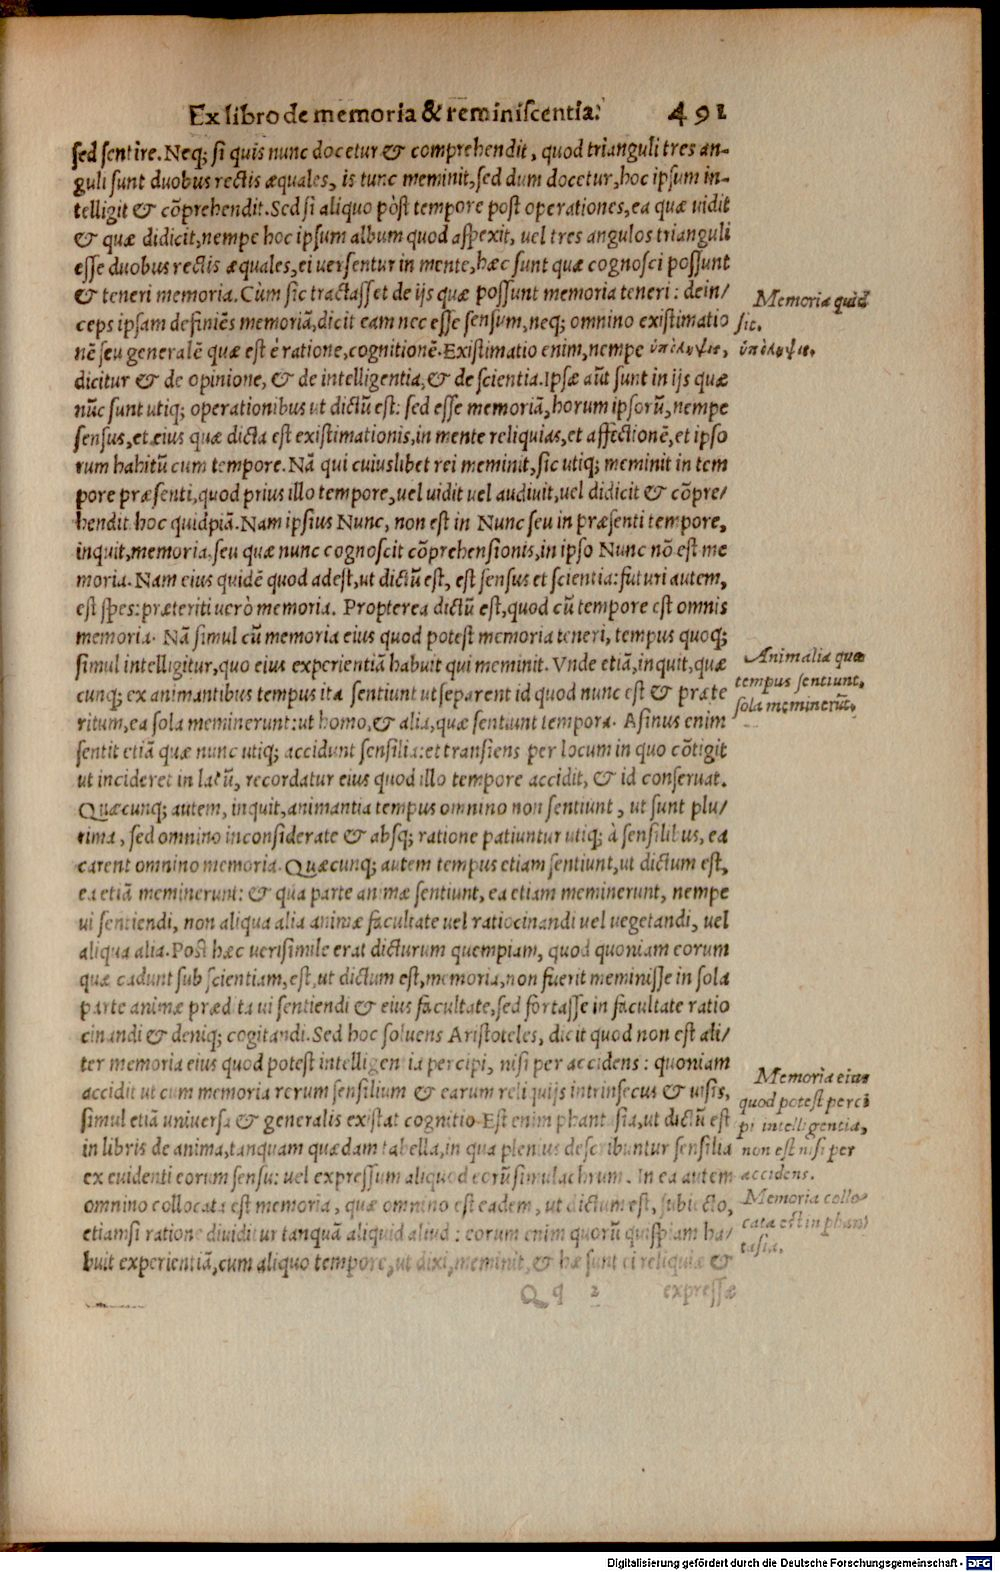 Ex libro de memoria & reminiscentia. 491
sed sentire. Neq; si quis nunc docetur & comprehendit, quod trianguli tres an-
guli sunt duobus rectis æquales, is tunc meminit, sed dum docetur, hoc ipsum in-
telligit & cõprehendit. Sed si aliquo pòst tempore post operationes, ea quæ uidit
& quæ didicit, nempe hoc ipsum album quod aspexit, uel tres angulos trianguli
esse duobus rectis æquales, ei uersentur in mente, hæc sunt quæ cognosci possunt
& teneri memoria. Cùm sic tractasset de ijs quæ possunt memoria teneri: dein/
ceps ipsam definiẽs memoriã, dicit eam nec esse sensum, neq; omnino existimatio
nẽ seu generalẽ quæ est è ratione, cognitionẽ. Existimatio enim, nempe ὑπόληψις,
dicitur & de opinione, & de intelligentia, & de scientia. Ipsæ aũt sunt in ijs quæ
nũc sunt utiq; operationibus ut dictũ est: sed esse memoriã, horum ipsorũ, nempe
sensus, et eius quæ dicta est existimationis, in mente reliquias, et affectionẽ, et ipso
rum habitũ cum tempore. Nã qui cuiuslibet rei meminit, sic utiq; meminit in tem
pore præsenti, quod prius illo tempore, uel uidit uel audiuit, uel didicit & cõpre/
hendit hoc quidpiã. Nam ipsius Nunc, non est in Nunc seu in præsenti tempore,
inquit, memoria, seu quæ nunc cognoscit cõprehensionis, in ipso Nunc nõ est me
moria. Nam eius quidẽ quod adest, ut dictũ est, est sensus et scientia: futuri autem,
est spes: præteriti uerò memoria. Propterea dictũ est, quod cũ tempore est omnis
memoria. Nã simul cũ memoria eius quod potest memoria teneri, tempus quoq;
simul intelligitur, quo eius experientiã habuit qui meminit. Vnde etiã, inquit, quæ
cunq; ex animantibus tempus ita sentiunt ut separent id quod nunc est & præte
ritum, ea sola meminerunt: ut homo, & alia, quæ sentiunt tempora. Asinus enim
sentit etiã quæ nunc utiq; accidunt sensilia: et transiens per locum in quo cõtigit
ut incideret in latũ, recordatur eius quod illo tempore accidit, & id conseruat.
Quæcunq; autem, inquit, animantia tempus omnino non sentiunt, ut sunt plu/
rima, sed omnino inconsiderate & absq; ratione patiuntur utiq; à sensilibus, ea
carent omnino memoria. Quæcunq; autem tempus etiam sentiunt, ut dictum est,
ea etiã meminerunt: & qua parte animæ sentiunt, ea etiam meminerunt, nempe
ui sentiendi, non aliqua alia animæ facultate uel ratiocinandi uel uegetandi, uel
aliqua alia. Post hæc uerisimile erat dicturum quempiam, quod quoniam eorum
quæ cadunt sub scientiam, est, ut dictum est, memoria, non fuerit meminisse in sola
parte animæ prædita ui sentiendi & eius facultate, sed fortasse in facultate ratio
cinandi & deniq; cogitandi. Sed hoc soluens Aristoteles, dicit quod non est ali/
ter memoria eius quod potest intelligentia percipi, nisi per accidens: quoniam
accidit ut cum memoria rerum sensilium & earum reliquijs intrinsecus & uisis,
simul etiã uniuersa & generalis existat cognitio. Est enim phantasia, ut dictũ est
in libris de anima, tanquam quædam tabella, in qua plenius describuntur sensilia
ex euidenti eorum sensu: uel expressum aliquod eorũ simulachrum. In ea autem
omnino collocata est memoria, quæ omnino est eadem, ut dictum est, subiecto,
etiamsi ratione diuiditur tanquã aliquid aliud: eorum enim quorũ quispiam ha/
buit experientiã, cum aliquo tempore, ut dixi, meminit, & hæ sunt ei reliquiæ &
Qq 2 expressæ
Memoria quid
sit.
ὑπόληψις.
Animalia quæ
tempus sentiunt,
sola meminerũt.
Memoria eius
quod potest perci
pi intelligentia,
non est nisi per
accidens.
Memoria collo-
cata est in phan
tasia.
Digitalisierung gefördert durch die Deutsche Forschungsgemeinschaft - DFG